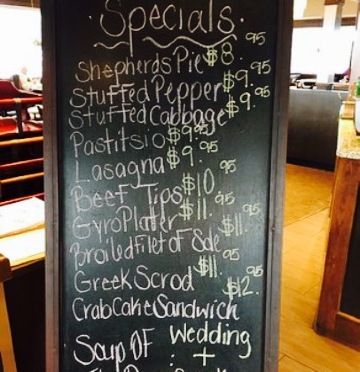 Specials.
Shepherds Pie $8.95
Stuffed Pepper $9.95
Stuffed Cabbage $9.95
Pastitsio $9.95
Lasagna $9.95
Beef Tips $10.95
Gyro Plater $11.95
Broiled filet of Sole $11.95
Greek Scrod $11.95
Crab Cake Sandwich $12.95
Soup Of Wedding
+